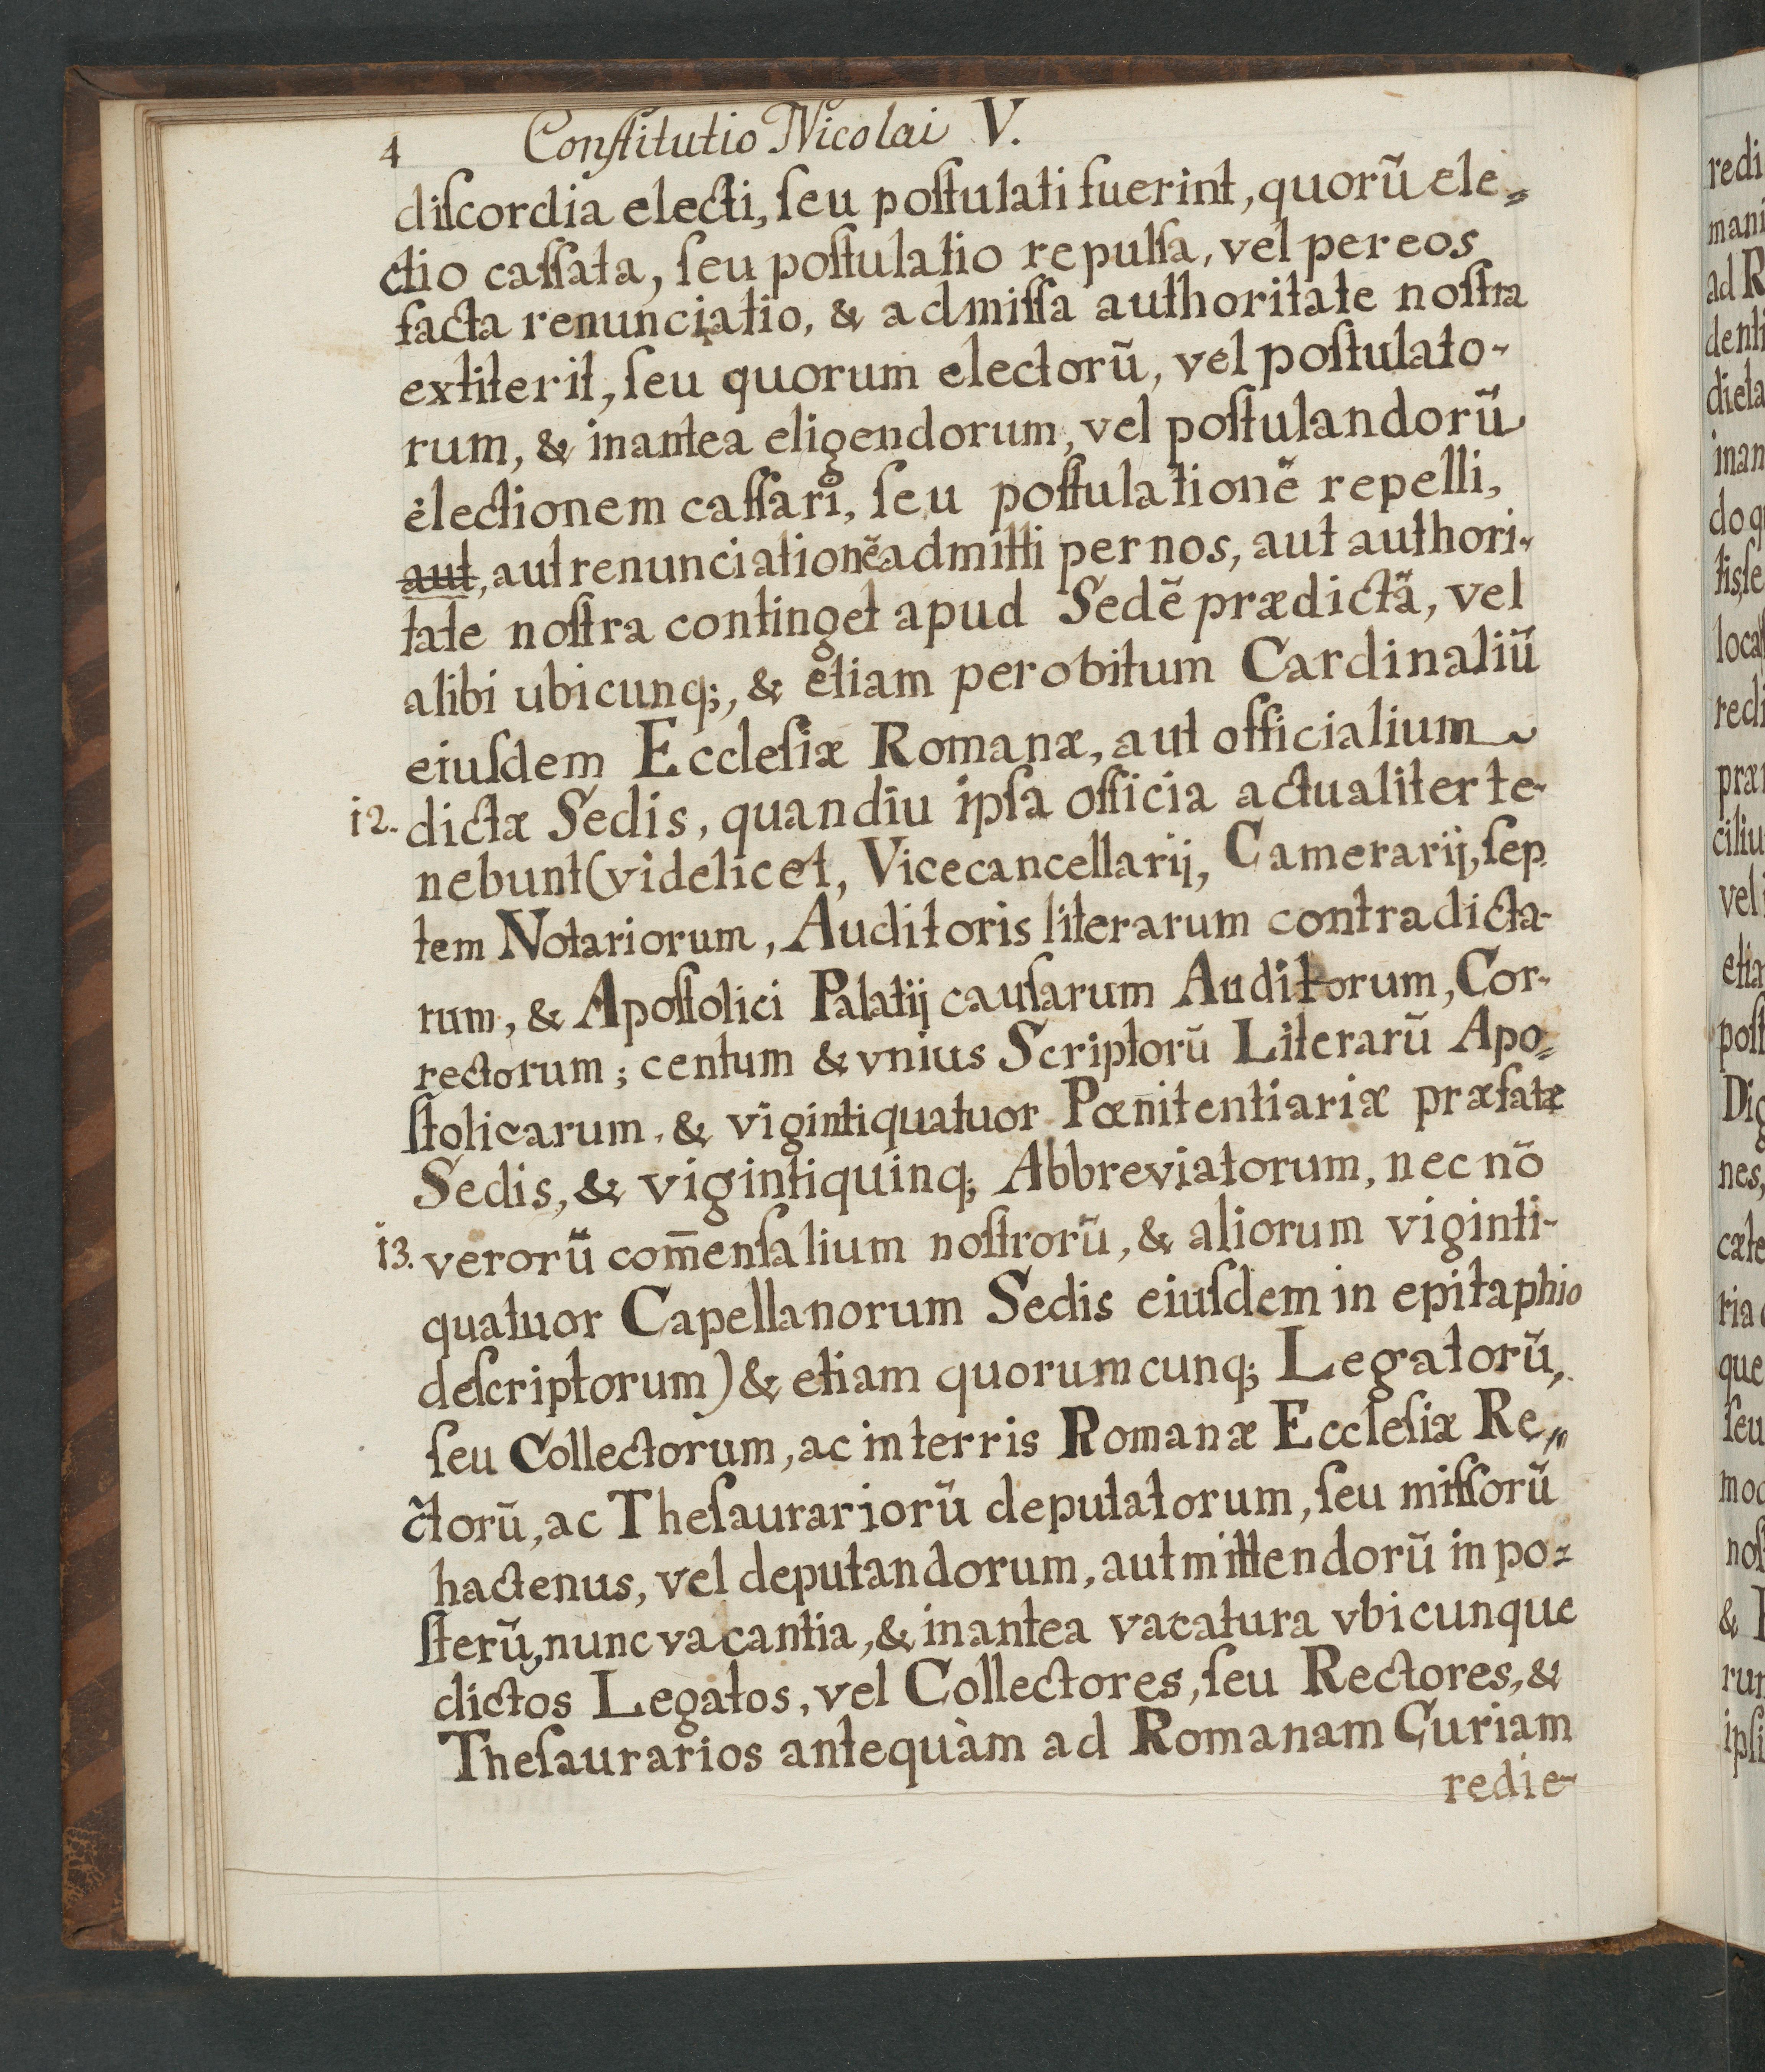 4 Conſtitutio Nicolai V.
diſcordia electi, ſeu poſtulati fuerint, quorũ ele-
ctio caſſata, ſeu poſtulatio repulſa, vel per eos
facta renunciatio, & admiſſa authoritate noſtra
extiterit, ſeu quorum electorũ, vel poſtulato-
rum, & inantea eligendorum, vel poſtulandorũ
electionem caſſari, ſeu poſtulationẽ repelli,
aut, aut renunciationẽ admitti per nos, aut authori-
tate noſtra continget apud Sedẽ prædictã, vel
alibi ubicunq;, & etiam per obitum Cardinaliũ
eiuſdem Eccleſiæ Romanæ, aut officialium
12. dictæ Sedis, quandiu ipſa officia actualiter te-
nebunt (videlicet, Vicecancellarij, Camerarij, ſep
tem Notariorum, Auditoris literarum contradicta-
rum, & Apoſtolici Palatij cauſarum Auditorum, Cor-
rectorum; centum & vnius Scriptorũ Literarũ Apo-
ſtolicarum, & vigintiquatuor Pœnitentiariæ præfatæ
Sedis, & vigintiquinq; Abbreviatorum, nec nõ
13. verorũ com̃enſalium noſtrorũ, & aliorum viginti-
quatuor Capellanorum Sedis eiuſdem in epitaphio
deſcriptorum) & etiam quorumcunq; Legatorũ,
ſeu Collectorum, ac in terris Romanæ Eccleſiæ Re-
ctorũ, ac Theſaurariorũ deputatorum, ſeu miſſorũ
hactenus, vel deputandorum, aut mittendorũ in po-
ſterũ, nunc vacantia, & inantea vacatura vbicunque
dictos Legatos, vel Collectores, ſeu Rectores, &
Theſaurarios antequàm ad Romanam Curiam
redie-
redi
mani
ad R
denti
dicta
inan
do q
tis, ſe
loca
redi
præ
ciliu
vel
etia
poſt
Dig
nes,
cæte
ria
que
ſeu
mod
noſ
&
rum
ipſi